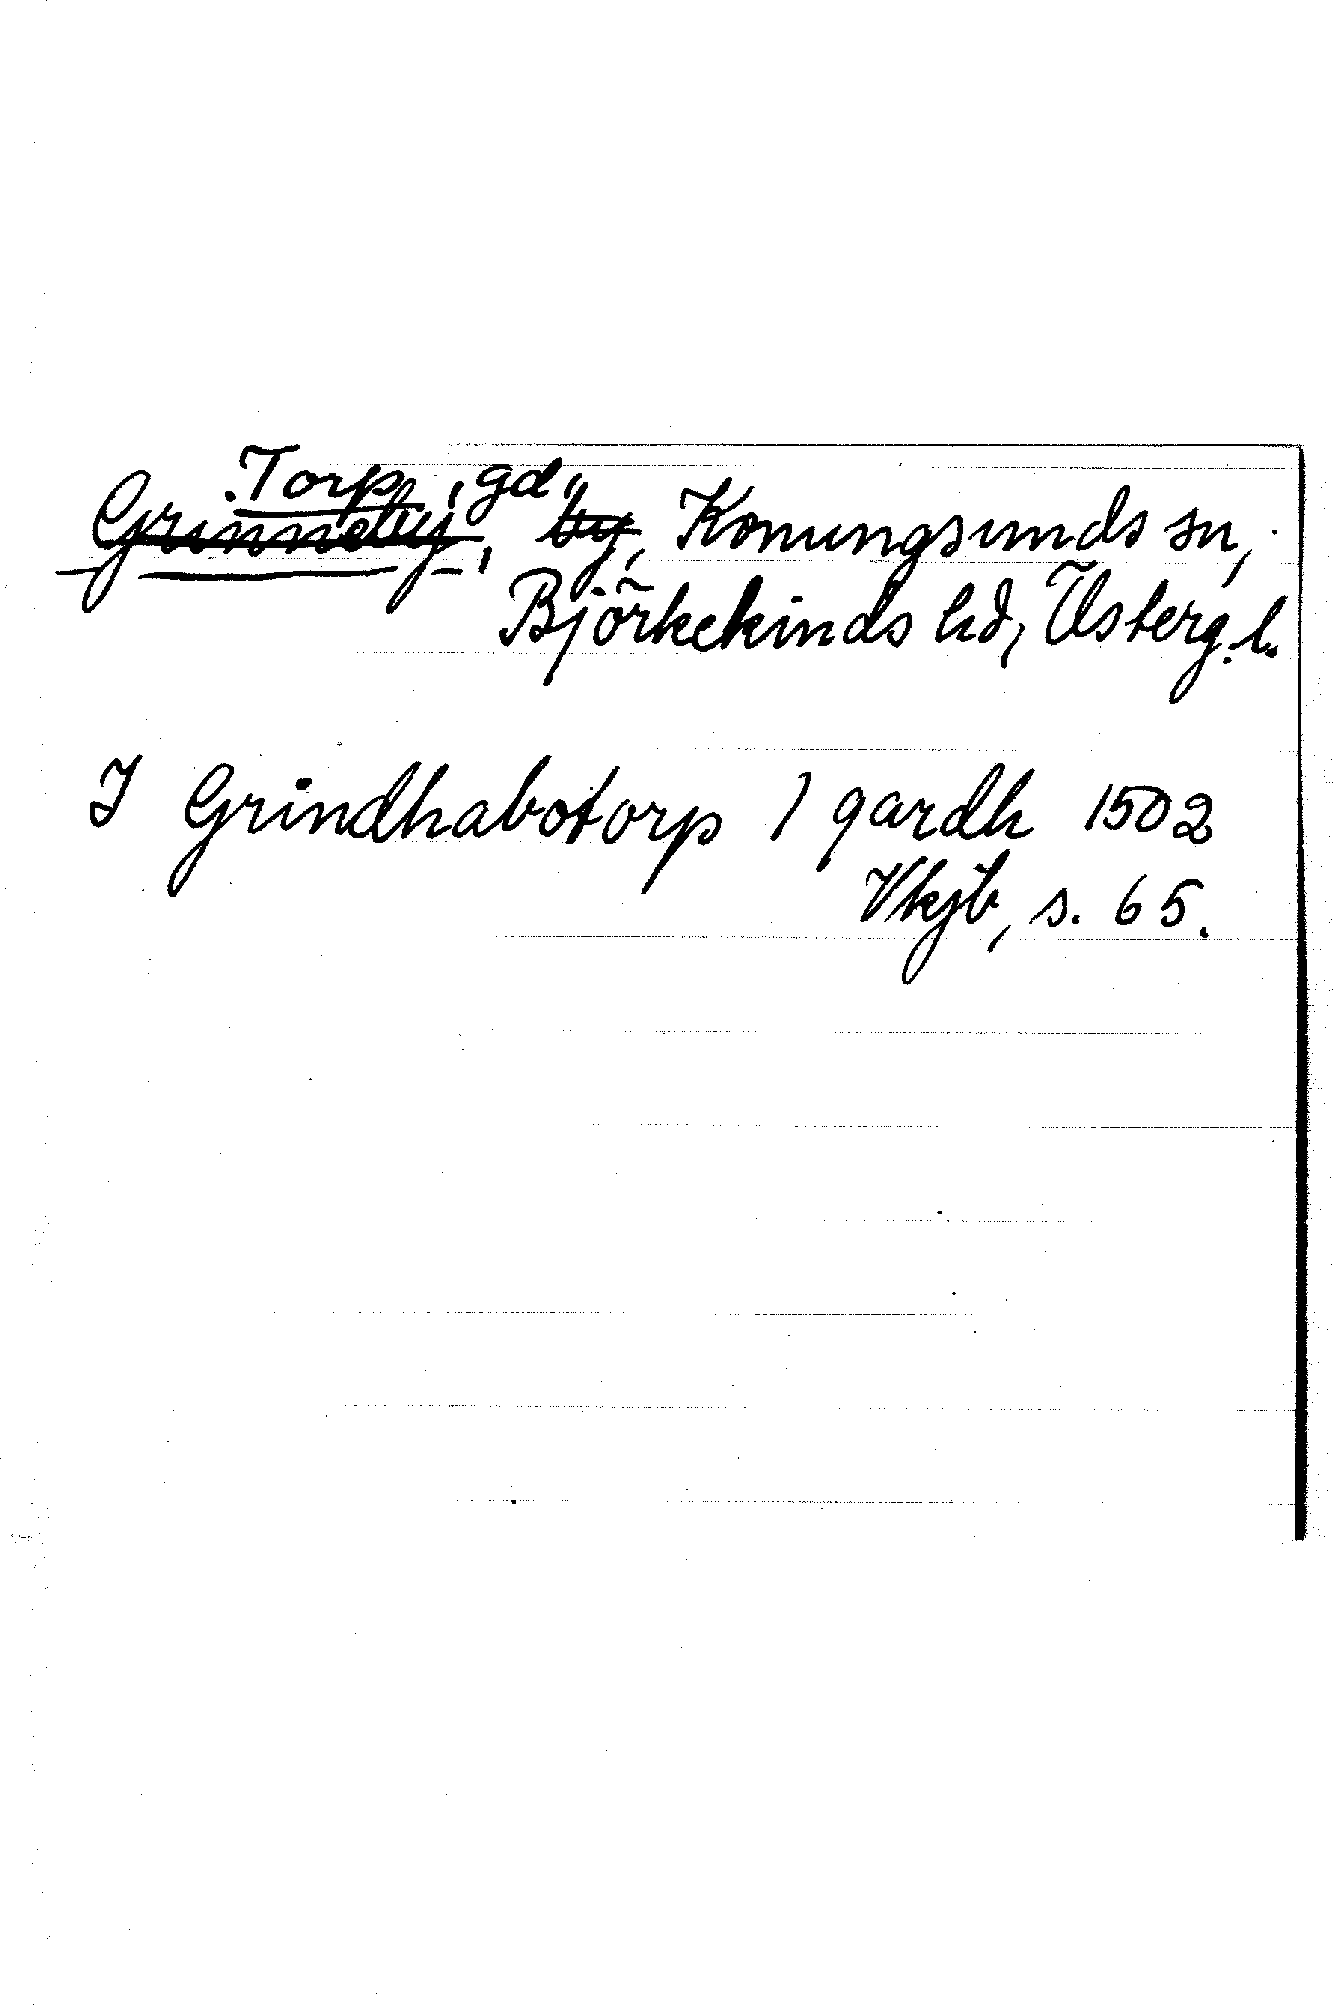 Torp, gd,
Grinneby, by, Konungsunds sn,
Björkekinds hd, Österg. l.
I Grindhabotorp 1 gardh 1502
Vkjb, s. 65.